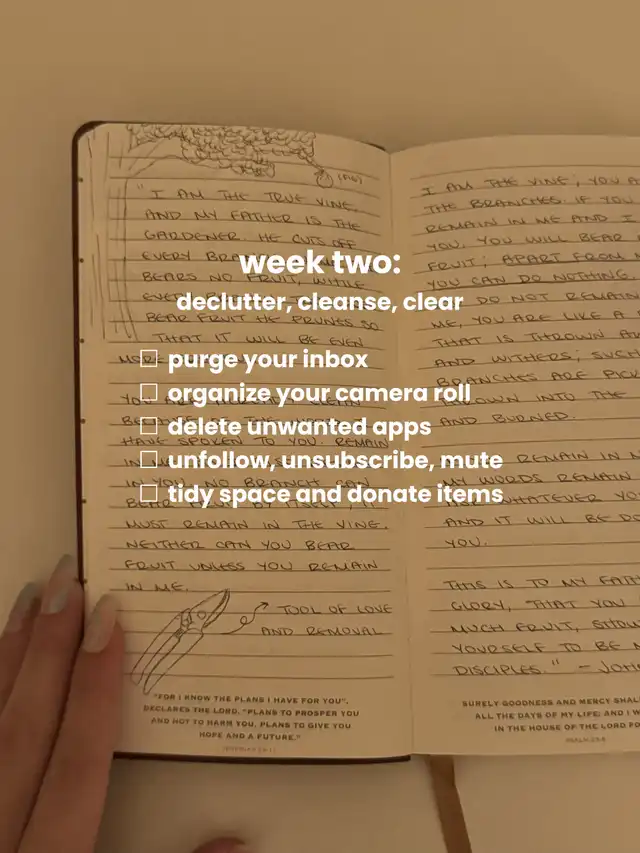 week two:
declutter, cleanse, clear
☐ purge your inbox
☐ organize your camera roll
☐ delete unwanted apps
☐ unfollow, unsubscribe, mute
☐ tidy space and donate items
"I AM THE TRUE VINE,
AND MY FATHER IS THE
GARDENER. HE CUTS OFF
EVERY
BEARS NO FRUIT, WHILE
BEAR FRUIT HE PRUNES SO
THAT IT WILL BE EVEN
HAVE SPOKEN TO YOU. REMAIN
IN YOU. NO BRANCH CAN
BEAR FRUIT BY ITSELF; IT
MUST REMAIN IN THE VINE.
NEITHER CAN YOU BEAR
FRUIT UNLESS YOU REMAIN
IN ME.
TOOL OF LOVE
AND REMOVAL
"FOR I KNOW THE PLANS I HAVE FOR YOU",
DECLARES THE LORD, "PLANS TO PROSPER YOU
AND NOT TO HARM YOU, PLANS TO GIVE YOU
HOPE AND A FUTURE."
JEREMIAH 29:11
I AM THE VINE; YOU
THE BRANCHES. IF YOU
REMAIN IN ME AND I
YOU, YOU WILL BEAR
FRUIT; APART FROM
YOU CAN DO NOTHING.
DO NOT REMAIN
ME, YOU ARE LIKE A
THAT IS THROWN
AND WITHERS; SUCH
BRANCHES ARE
THROWN INTO THE
AND BURNED.
REMAIN IN
MY WORDS REMAIN
WHATEVER
AND IT WILL BE
YOU.
THIS IS TO MY
GLORY, THAT YOU
MUCH FRUIT,
YOURSELF TO BE
DISCIPLES." -
SURELY GOODNESS AND MERCY
ALL THE DAYS OF MY LIFE; AND I
IN THE HOUSE OF THE LORD
PSALM 23:6